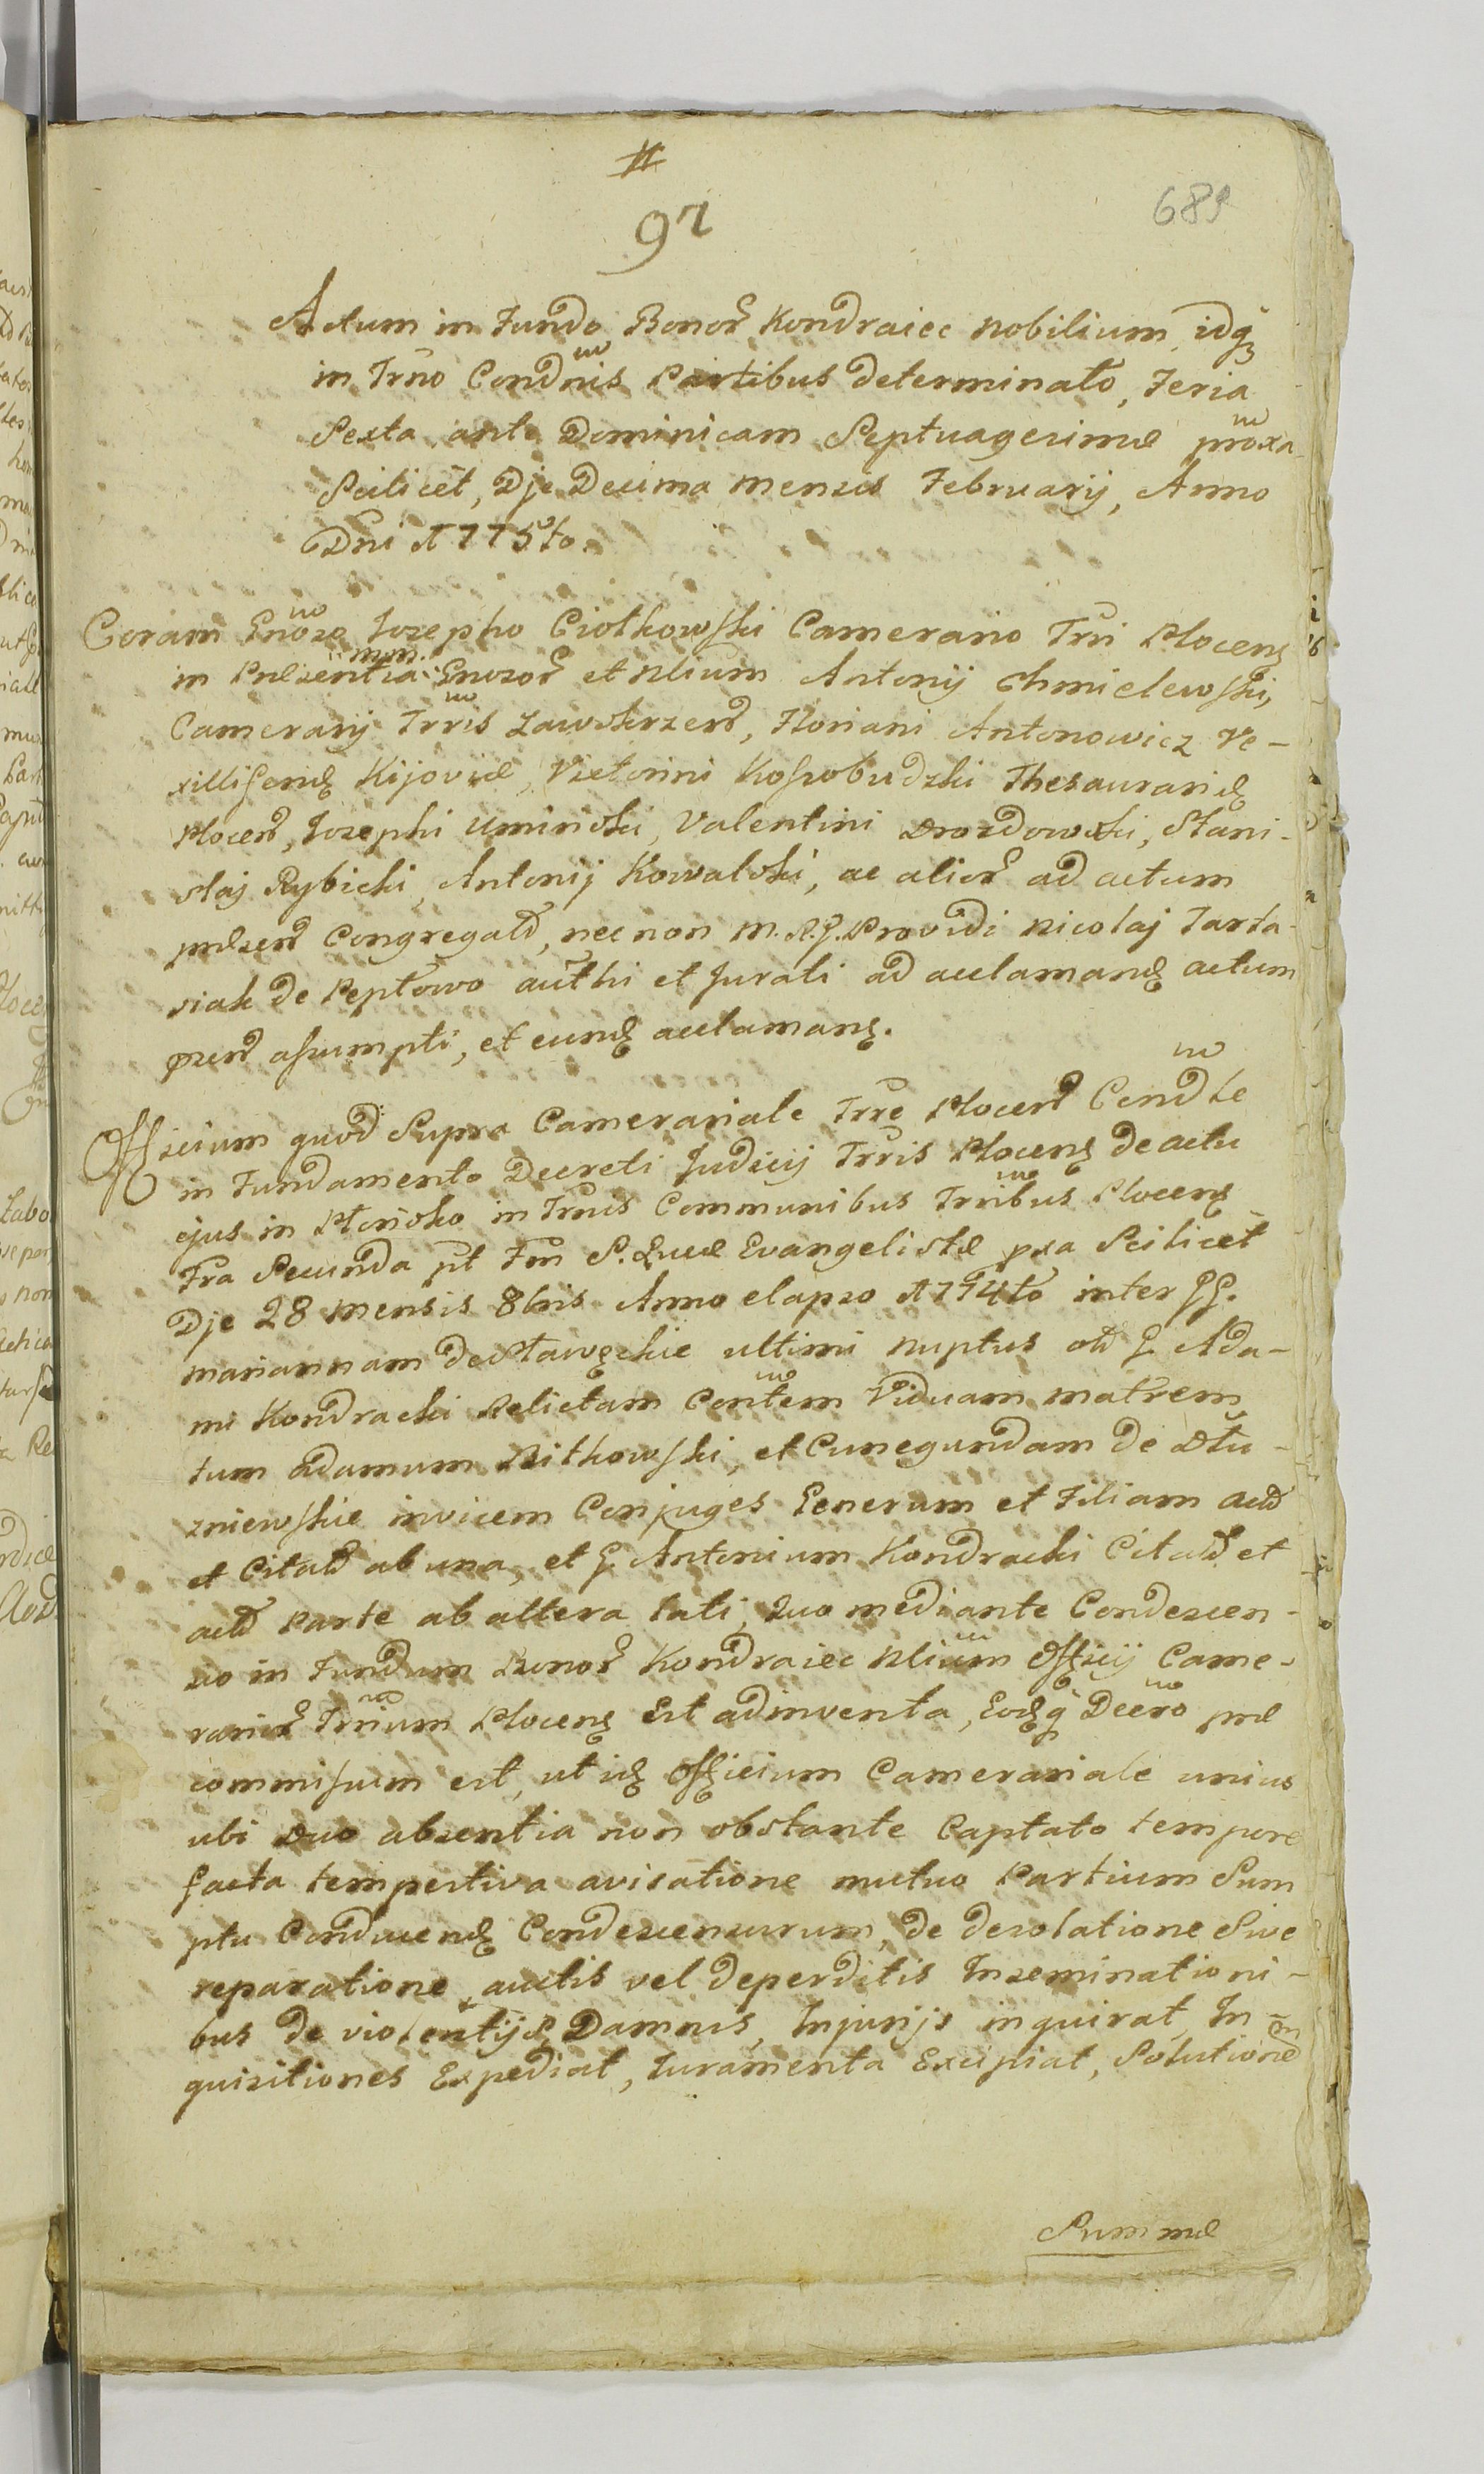 #
97
689
Actum in Fundo Bonor̃ Kondraiec Nobilium, idq̃
in Trno Condnis Partibus determinato, Feria
Sexta ante Dominicam Septuagesimæ proxa
Scilicet, Dje Decima mensis February, Anno
Dni 1775to.
Coram Gnoso Josepho Ciołkowski Camerario Trri Plocens
in Præsentia Gnosor̃ et Nlium Antonij Chmielewski,
Camerarij Trris Zawskrzens, Floriani Antonowicz Ve-
xilliferidæ Kijoviæ, Victorini Kossobudzki Thesaurarid
Plocens, Josephi Uminski, Valentini Drozdowski, Stani-
slaj Rybicki, Antonij Kowalski, ac alior̃ ad actum
præsens Congregatt, nec non M. R. G. Providi Nicolaj Tarta-
siak de Peptowo authi et Jurati ad acclamand actum
præsens assumpti, et eund acclamans.
Officium quod Supra Camerariale Trre Plocens Condle
in Fundamento Decreti Judicij Trris Plocens de actu
ejus in Płonsko in Trnis Communibus Trribus Plocens
Fra Secunda pt Fm S. Lucæ Evangelistæ pxa Scilicet
Dje 28 Mensis 8bris Anno elapso 1774to inter GG.
Mariannam de Stawskie ultimi nuptus ol G. Ada-
mi Kondracki Relictam Contem Viduam matrem
tum Adamum Bitkowski, et Cunegundam de Dłu-
zniewskie invicem Conjuges Generum et Filiam act
et Citatt ab una, et G. Antonium Kondracki Citatt et
act parte ab altera lati, Quo mediante Condescen-
sio in Fundum Bonor̃ Kondraiec Nlium Officij Came-
rarid Trrium Plocens Est adinventa, Eodq̃ Decro præ
commissum est, ut id Officium Camerariale unius
ubi duo absentia non obstante Captato tempore
facta tempestiva avisatione mutuo Partium Sum
ptu Conducend Condescensurum, de desolatione Sive
reparatione, auctis vel deperditis Inseminationi-
bus de violentijs, Damnis, Injurijs inquirat, In-
quisitiones Expediat, Juramenta Excipiat, Solutione
Summæ